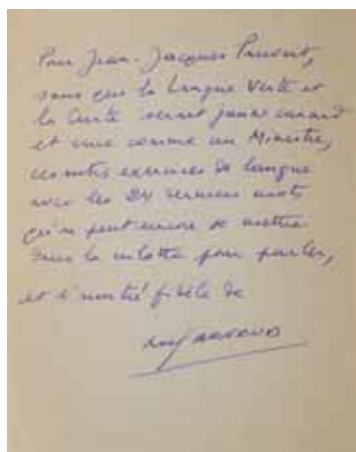 Pour Jean-Jacques Pauvert,
sans qui la Langue Verte et
la Cuite seraient jaune canard
et une comme un Ministre,
ces exercices de langue
avec les 24 derniers mots
qu'on peut encore se mettre
sous la culotte pour parler,
et l'amitié fidèle de